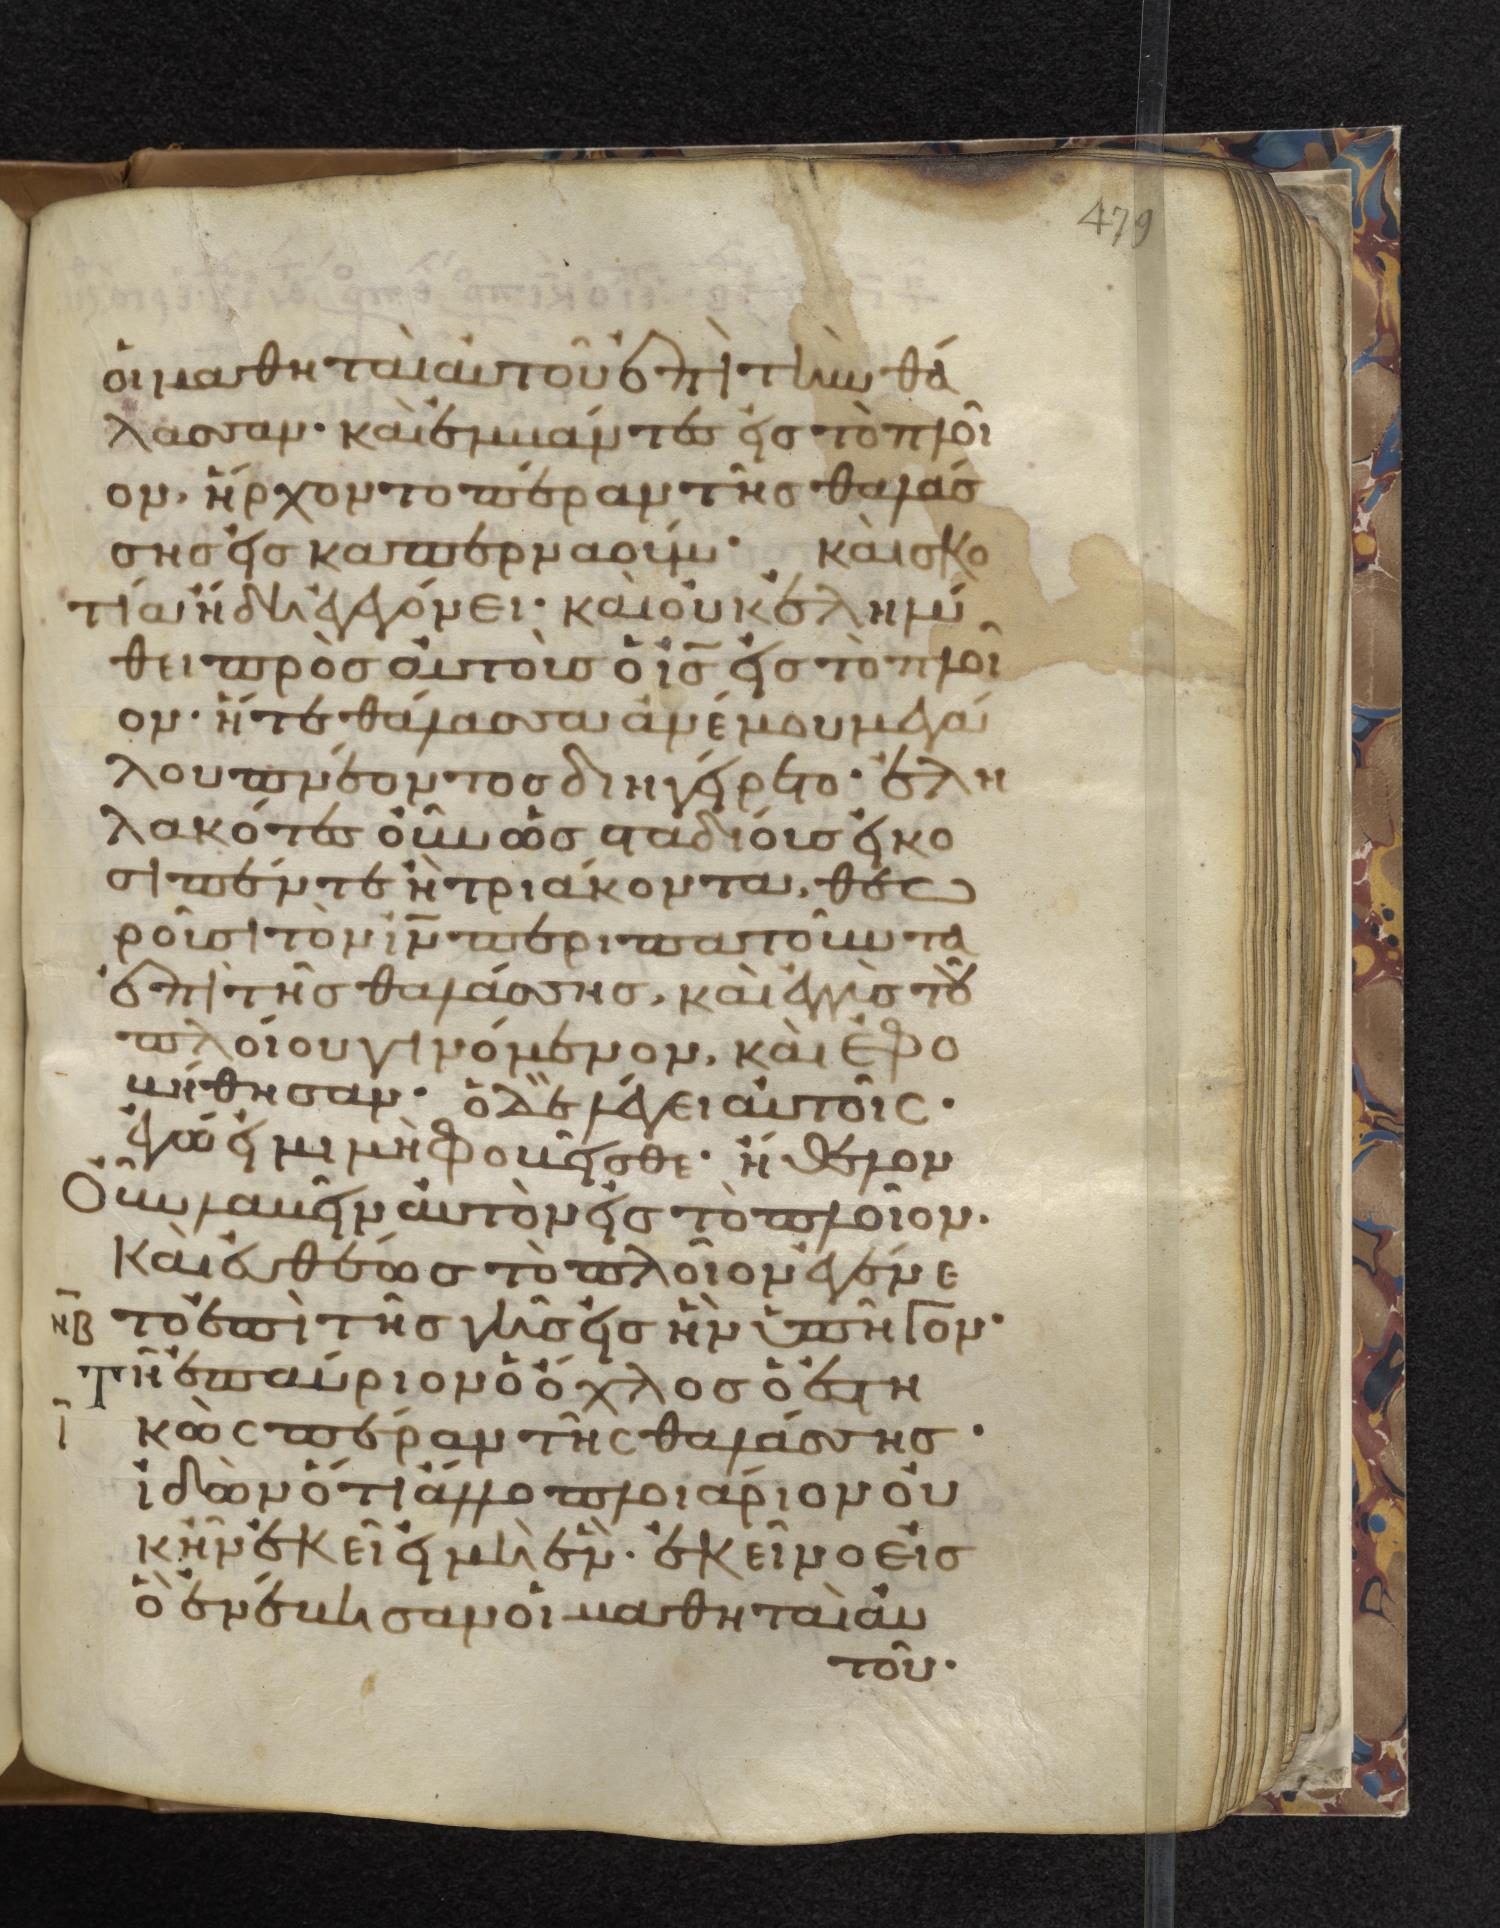 479
οἱ μαθηταὶ αὐτοῦ ἐπὶ τὴν θά
λασσαν· καὶ ἐμβάντες εἰς τὸ πλοῖ
ον, ἤρχοντο πέραν τῆς θαλάσ
σης εἰς καπερναούμ· καὶ σκο
τία ἤδη ἐγεγόνει· καὶ οὐκ ἐληλύ
θει πρὸς αὐτοὺς ὁ ἰς̅ εἰς τὸ πλοῖ
ον· ἥ τε θάλασσα ἀνέμου μεγά
λου πνέοντος διηγείρετο· ἐλη
λακότες οὖν ὡς σταδίους εἰκο
σι πέντε ἢ τριάκοντα, θεω
ροῦσι τὸν ἰν̅ περιπατοῦντα
ἐπὶ τῆς θαλάσσης, καὶ ἐγγὺς τοῦ
πλοίου γινόμενον, καὶ ἐφο
βήθησαν· ὁ δὲ λέγει αὐτοῖς·
ἐγώ εἰμι μὴ φοβεῖσθε· ἤθελον
Οὖν λαβεῖν αὐτὸν εἰς τὸ πλοῖον·
καὶ εὐθέως τὸ πλοῖον ἐγένε
ηβ το ἐπὶ τῆς γῆς εἰς ἣν ὑπῆγον·
Τῇ ἐπαύριον ὁ ὄχλος ὁ ἑστη
ι κὼς πέραν τῆς θαλάσσης·
ἰδὼν ὅτι ἄλλο πλοιάριον οὐ
κ ἦν ἐκεῖ εἰ μὴ ἕν· ἐκεῖνο εἰς
ὃ ἐνέβησαν οἱ μαθηταὶ αὐ
τοῦ·